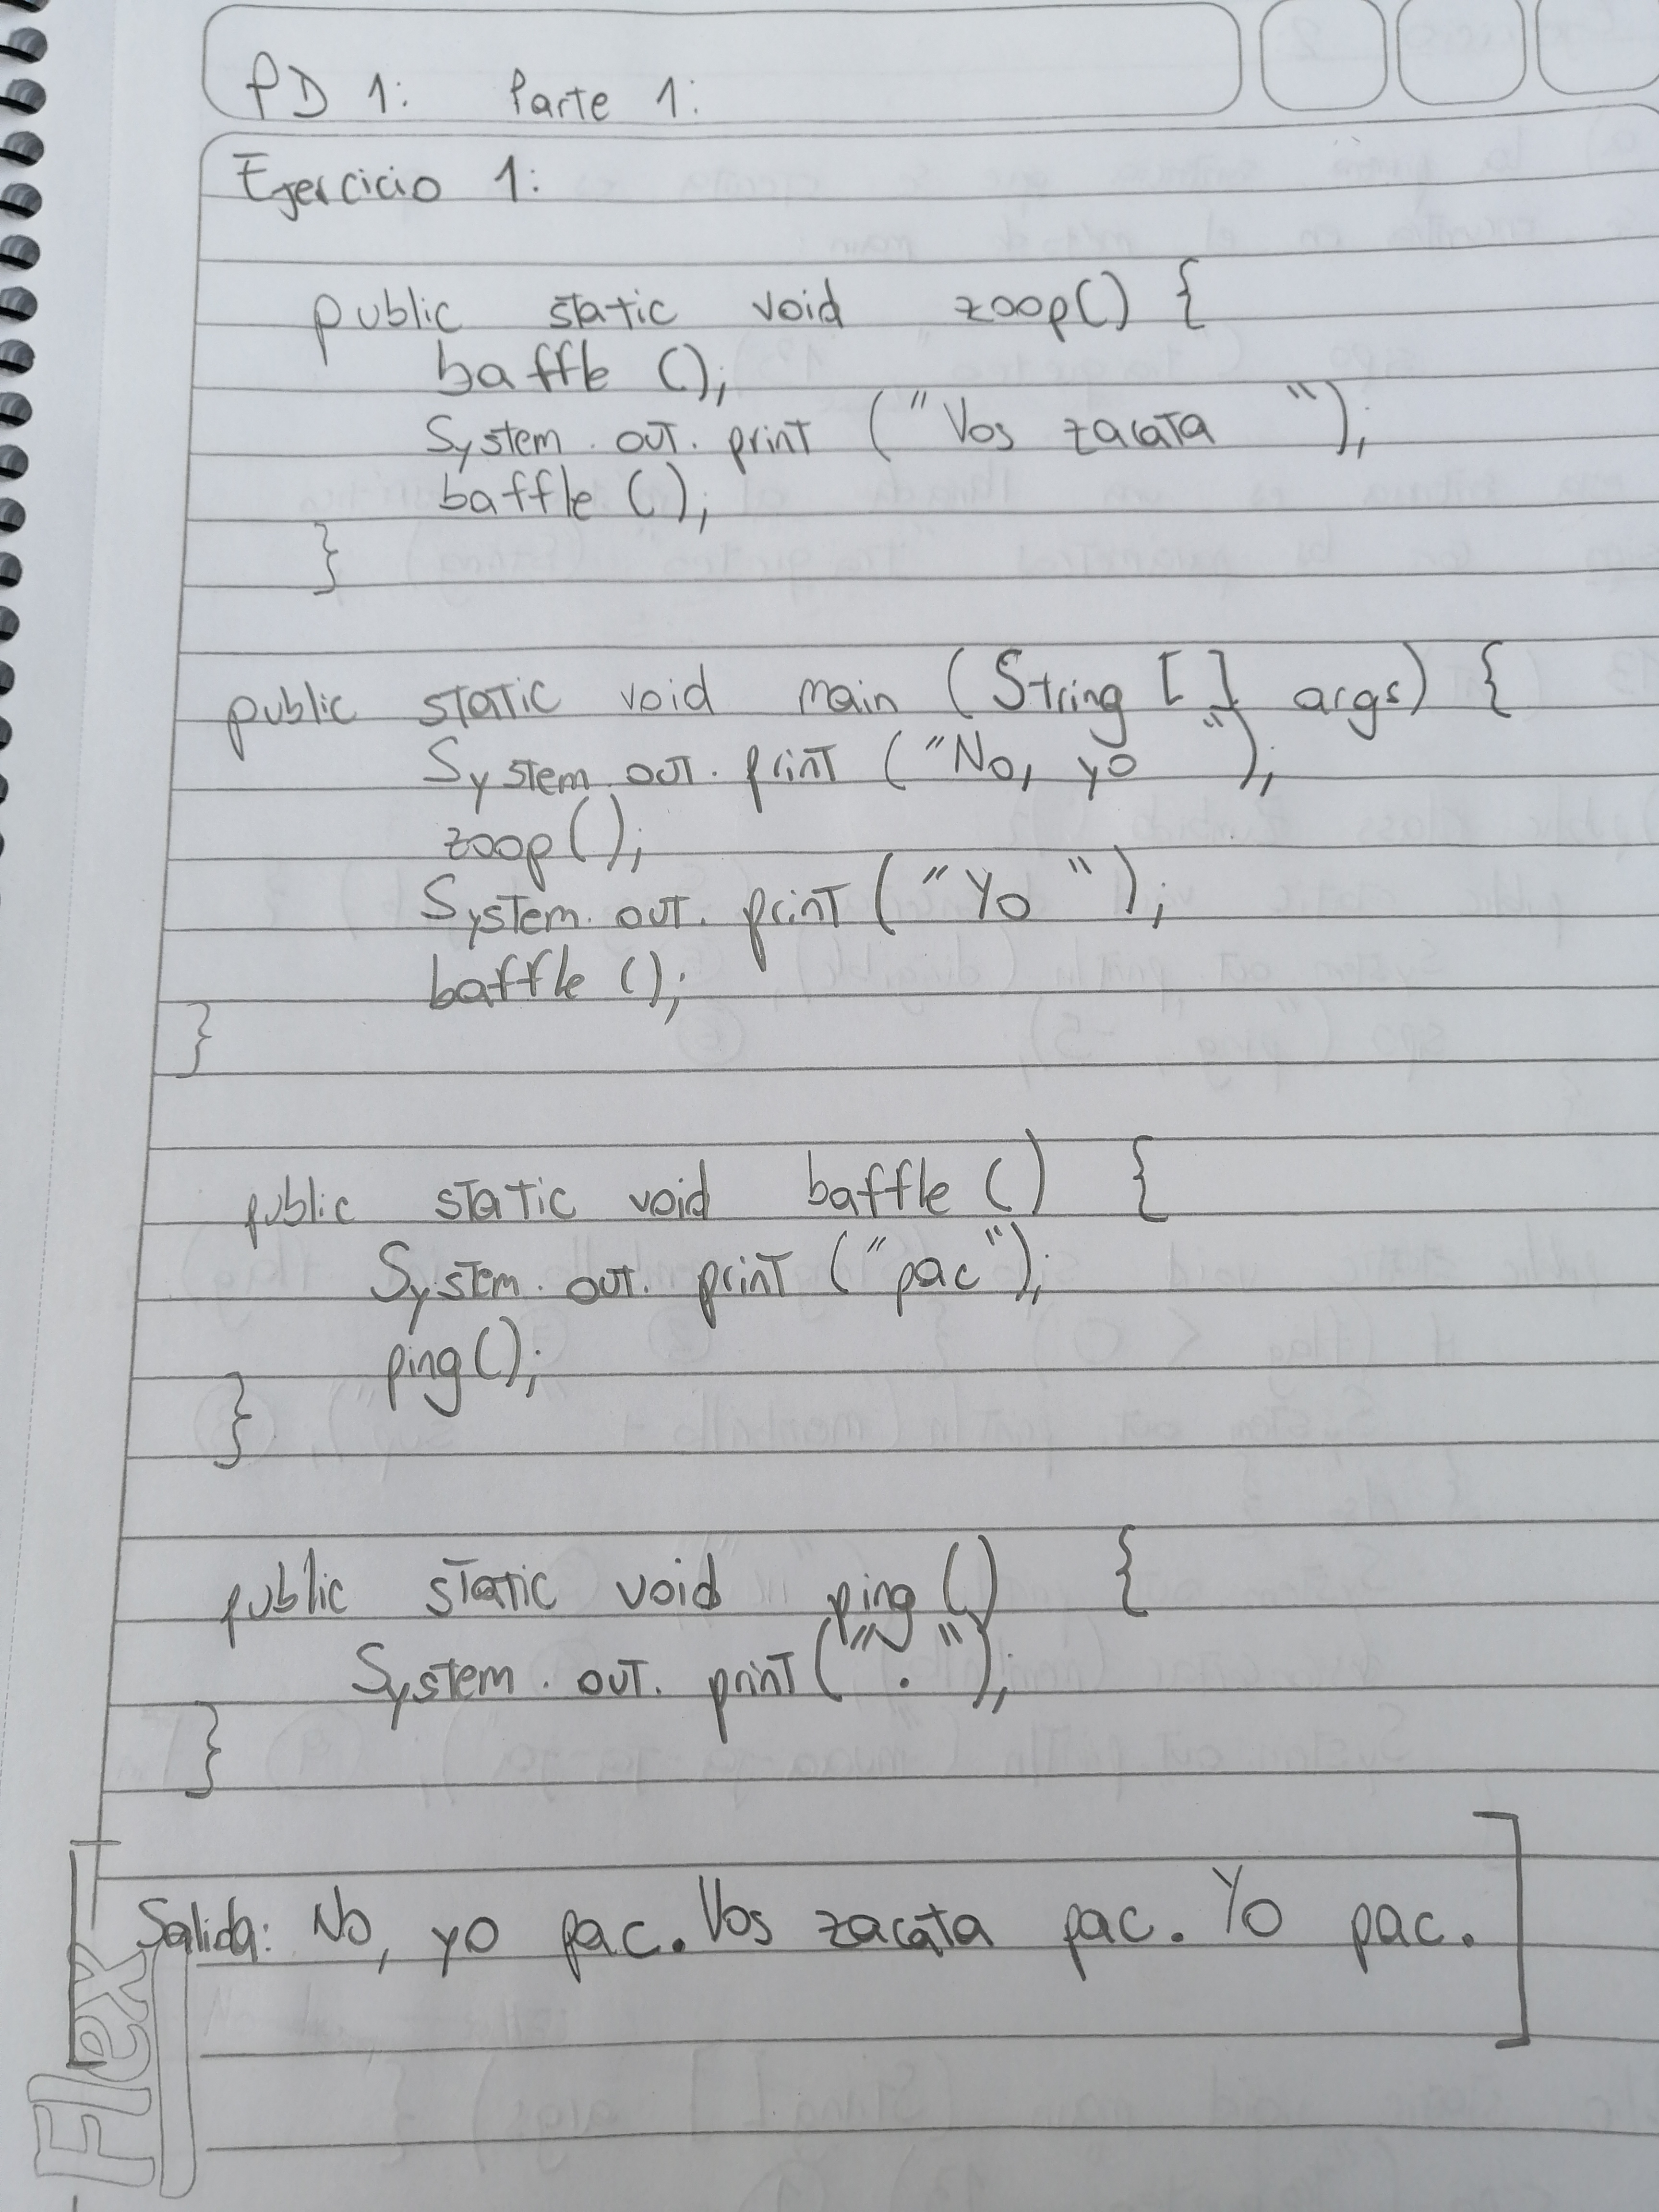 PD 1: Parte 1:
Ejercicio 1:
public static void zoop() {
baffle ();
System.out.print ("Vos zacata ");
baffle ();
}
public static void main (String [] args) {
System.out.print ("No, yo ");
zoop();
System.out.print ("Yo ");
baffle ();
}
public static void baffle () {
System.out.print ("pac");
ping();
}
public static void ping () {
System.out.print (". ");
}
Salida: No, yo pac. Vos zacata pac. Yo pac.
Flex